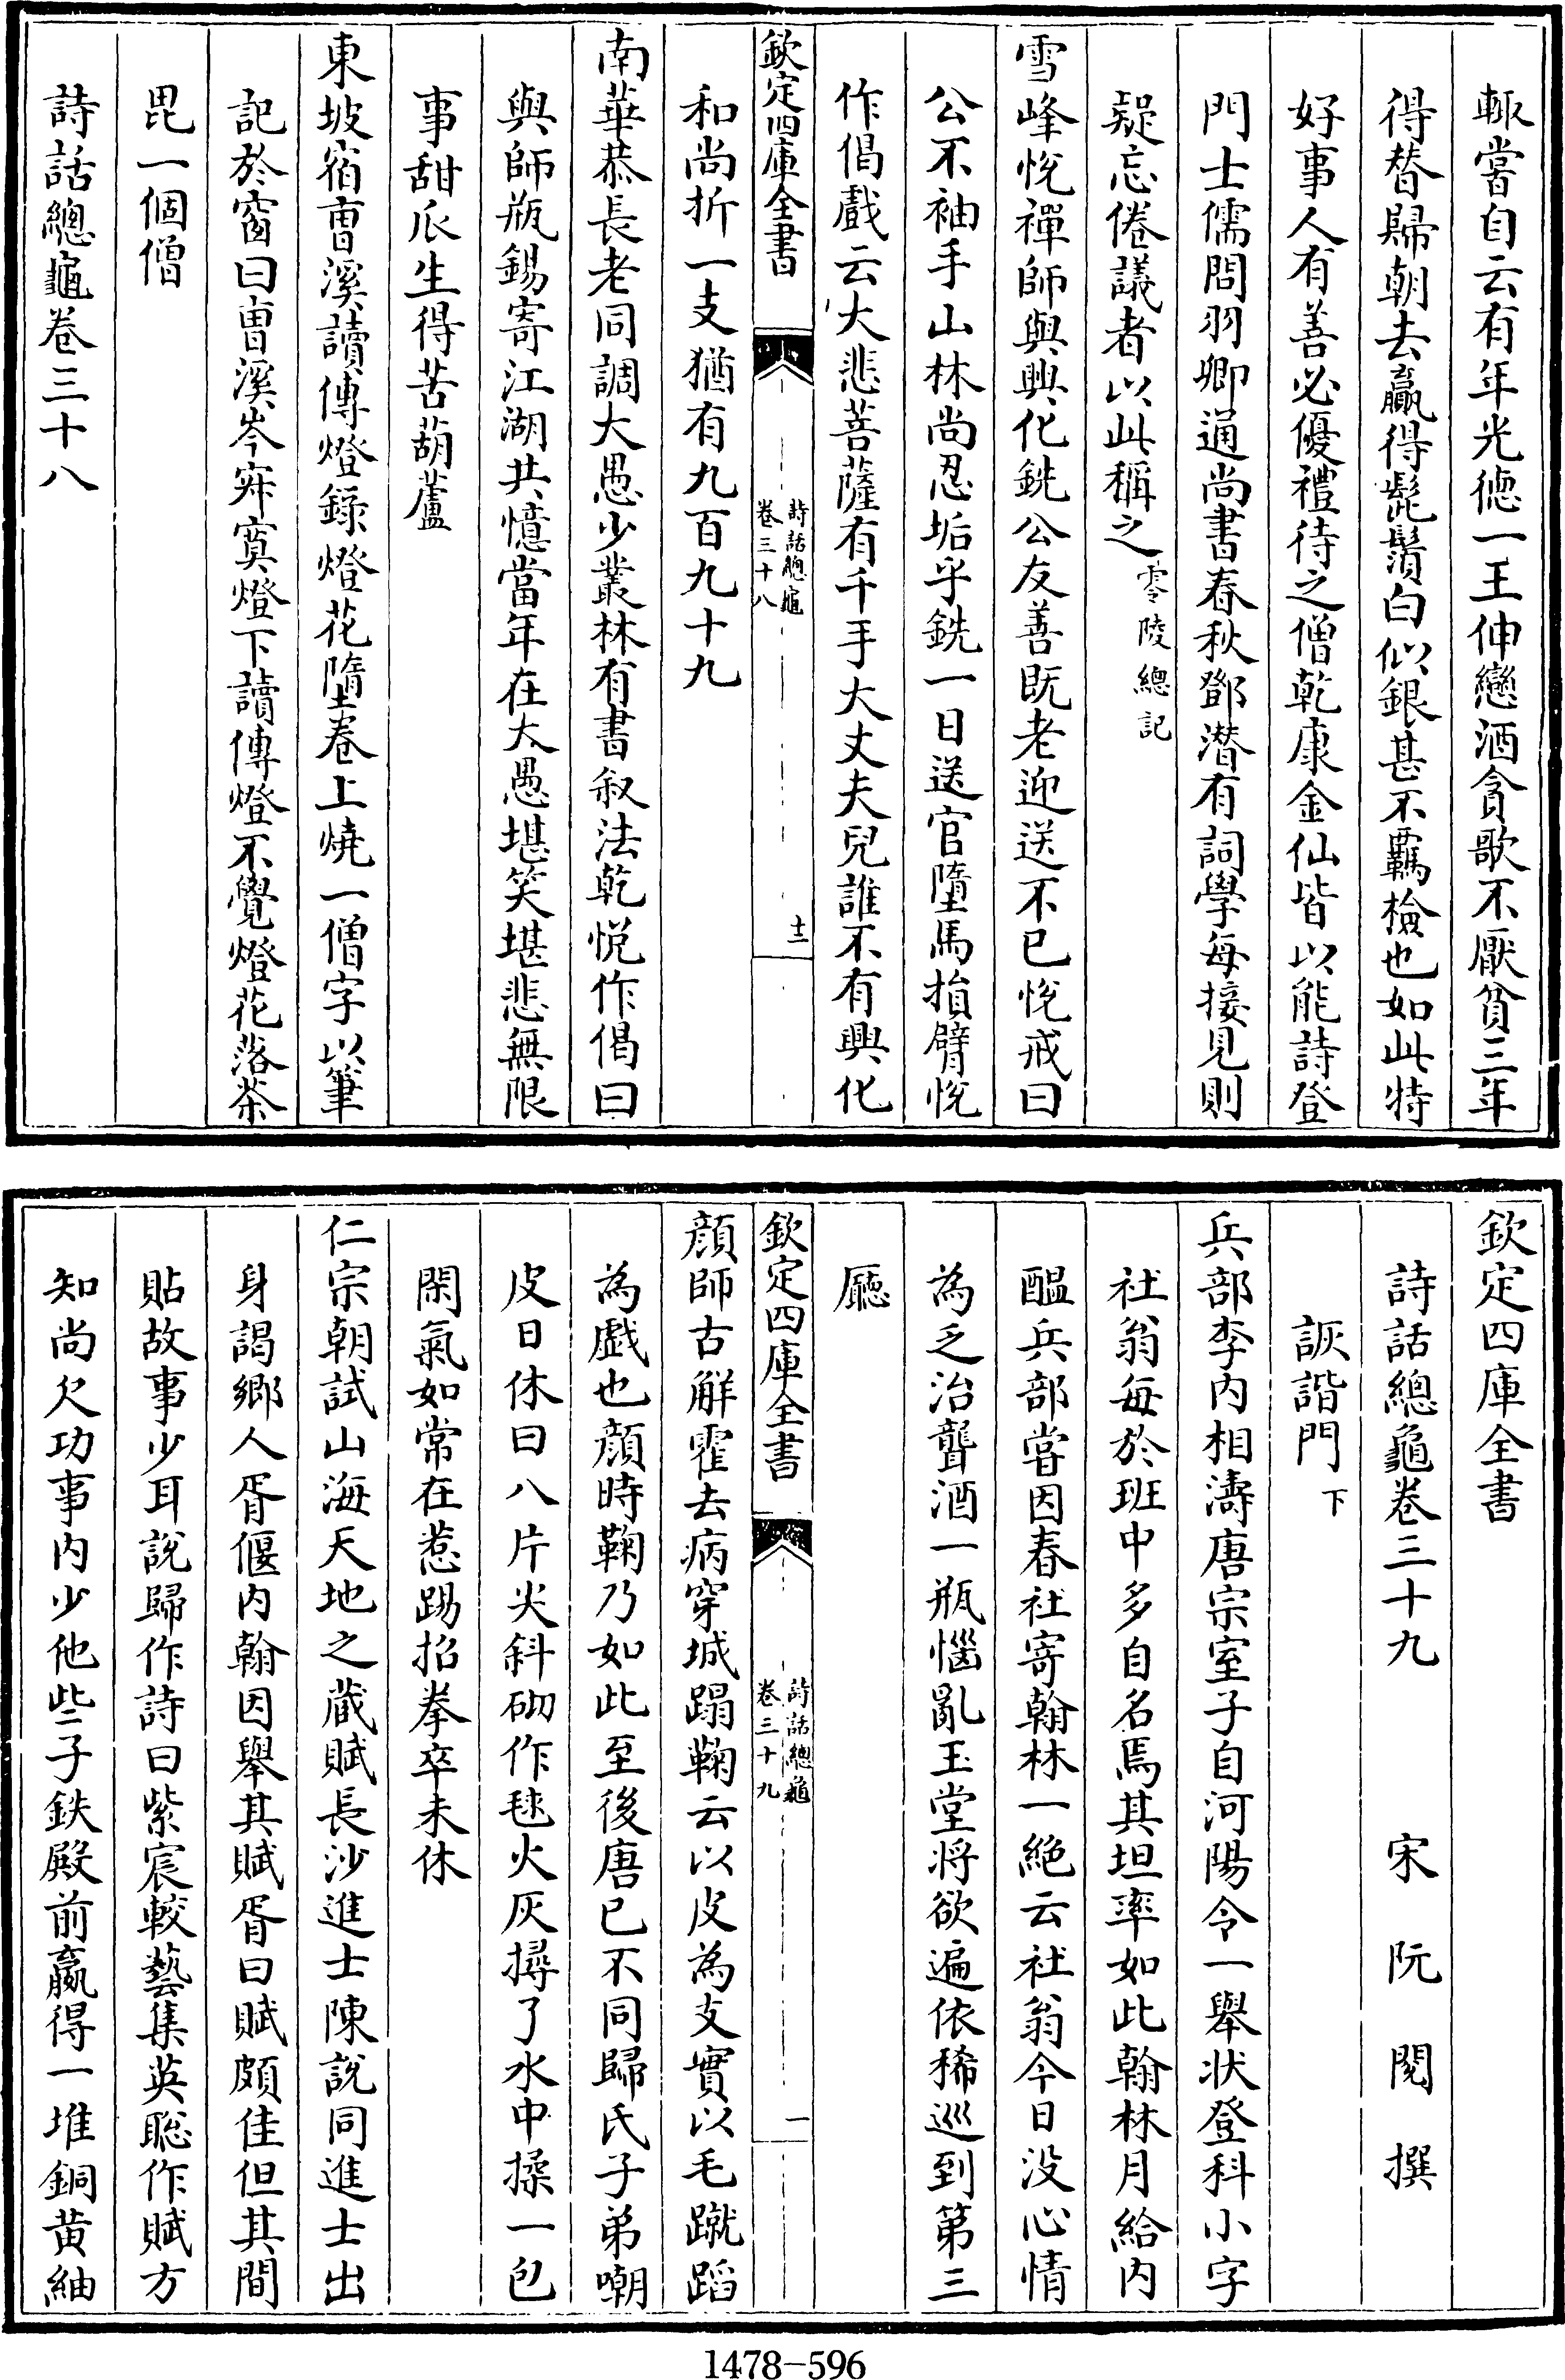 輒嘗自云有年光德一王伸戀酒貪歌不厭貧三年
得替歸朝去贏得髭鬚白似銀甚不羈檢也如此特
好事人有善必優禮待之僧乾康金仙皆以能詩登
門士儒問羽卿通尚書春秋鄧潛有詞學每接見則
疑忘倦議者以此稱之零陵總記
雪峰悅禪師與興化銑公友善既老迎送不已悅戒曰
公不袖手山林尚忍垢乎銑一日送官墮馬損臂悅
作偈戲云大悲菩薩有千手大丈夫兒誰不有興化
欽定四庫全書
詩話總龜
卷三十八
十二
和尚折一支猶有九百九十九
南華恭長老同調大愚少叢林有書叙法乾悅作偈曰
與師瓶錫寄江湖共憶當年在大愚堪笑堪悲無限
事甜瓜生得苦葫蘆
東坡宿曹溪讀傳燈錄燈花墮卷上燒一僧字以筆
記於窗曰曹溪岑寂寞燈下讀傳燈不覺燈花落茶
毘一個僧
詩話總龜卷三十八
欽定四庫全書
詩話總龜卷三十九
宋阮閱撰
詼諧門下
兵部李内相濤唐宗室子自河陽令一舉狀登科小字
社翁每於班中多自名焉其坦率如此翰林月給内
醞兵部嘗因春社寄翰林一絶云社翁今日没心情
為乏治聾酒一瓶惱亂玉堂將欲遍依稀巡到第三
廳
欽定四庫全書
詩話總龜
卷三十九
一
顔師古解霍去病穿城蹋鞠云以皮為支實以毛蹴蹈
為戲也顔時鞠乃如此至後唐已不同歸氏子弟嘲
皮日休曰八片尖斜砌作毬火灰撏了水中揉一包
閑氣如常在惹踢招拳卒未休
仁宗朝試山海天地之藏賦長沙進士陳說同進士出
身謁鄉人胥偃内翰因舉其賦胥曰賦頗佳但其間
貼故事少耳說歸作詩曰紫宸較藝集英聰作賦方
知尚欠功事内少他些子鉄殿前贏得一堆銅黄紬
1478-596